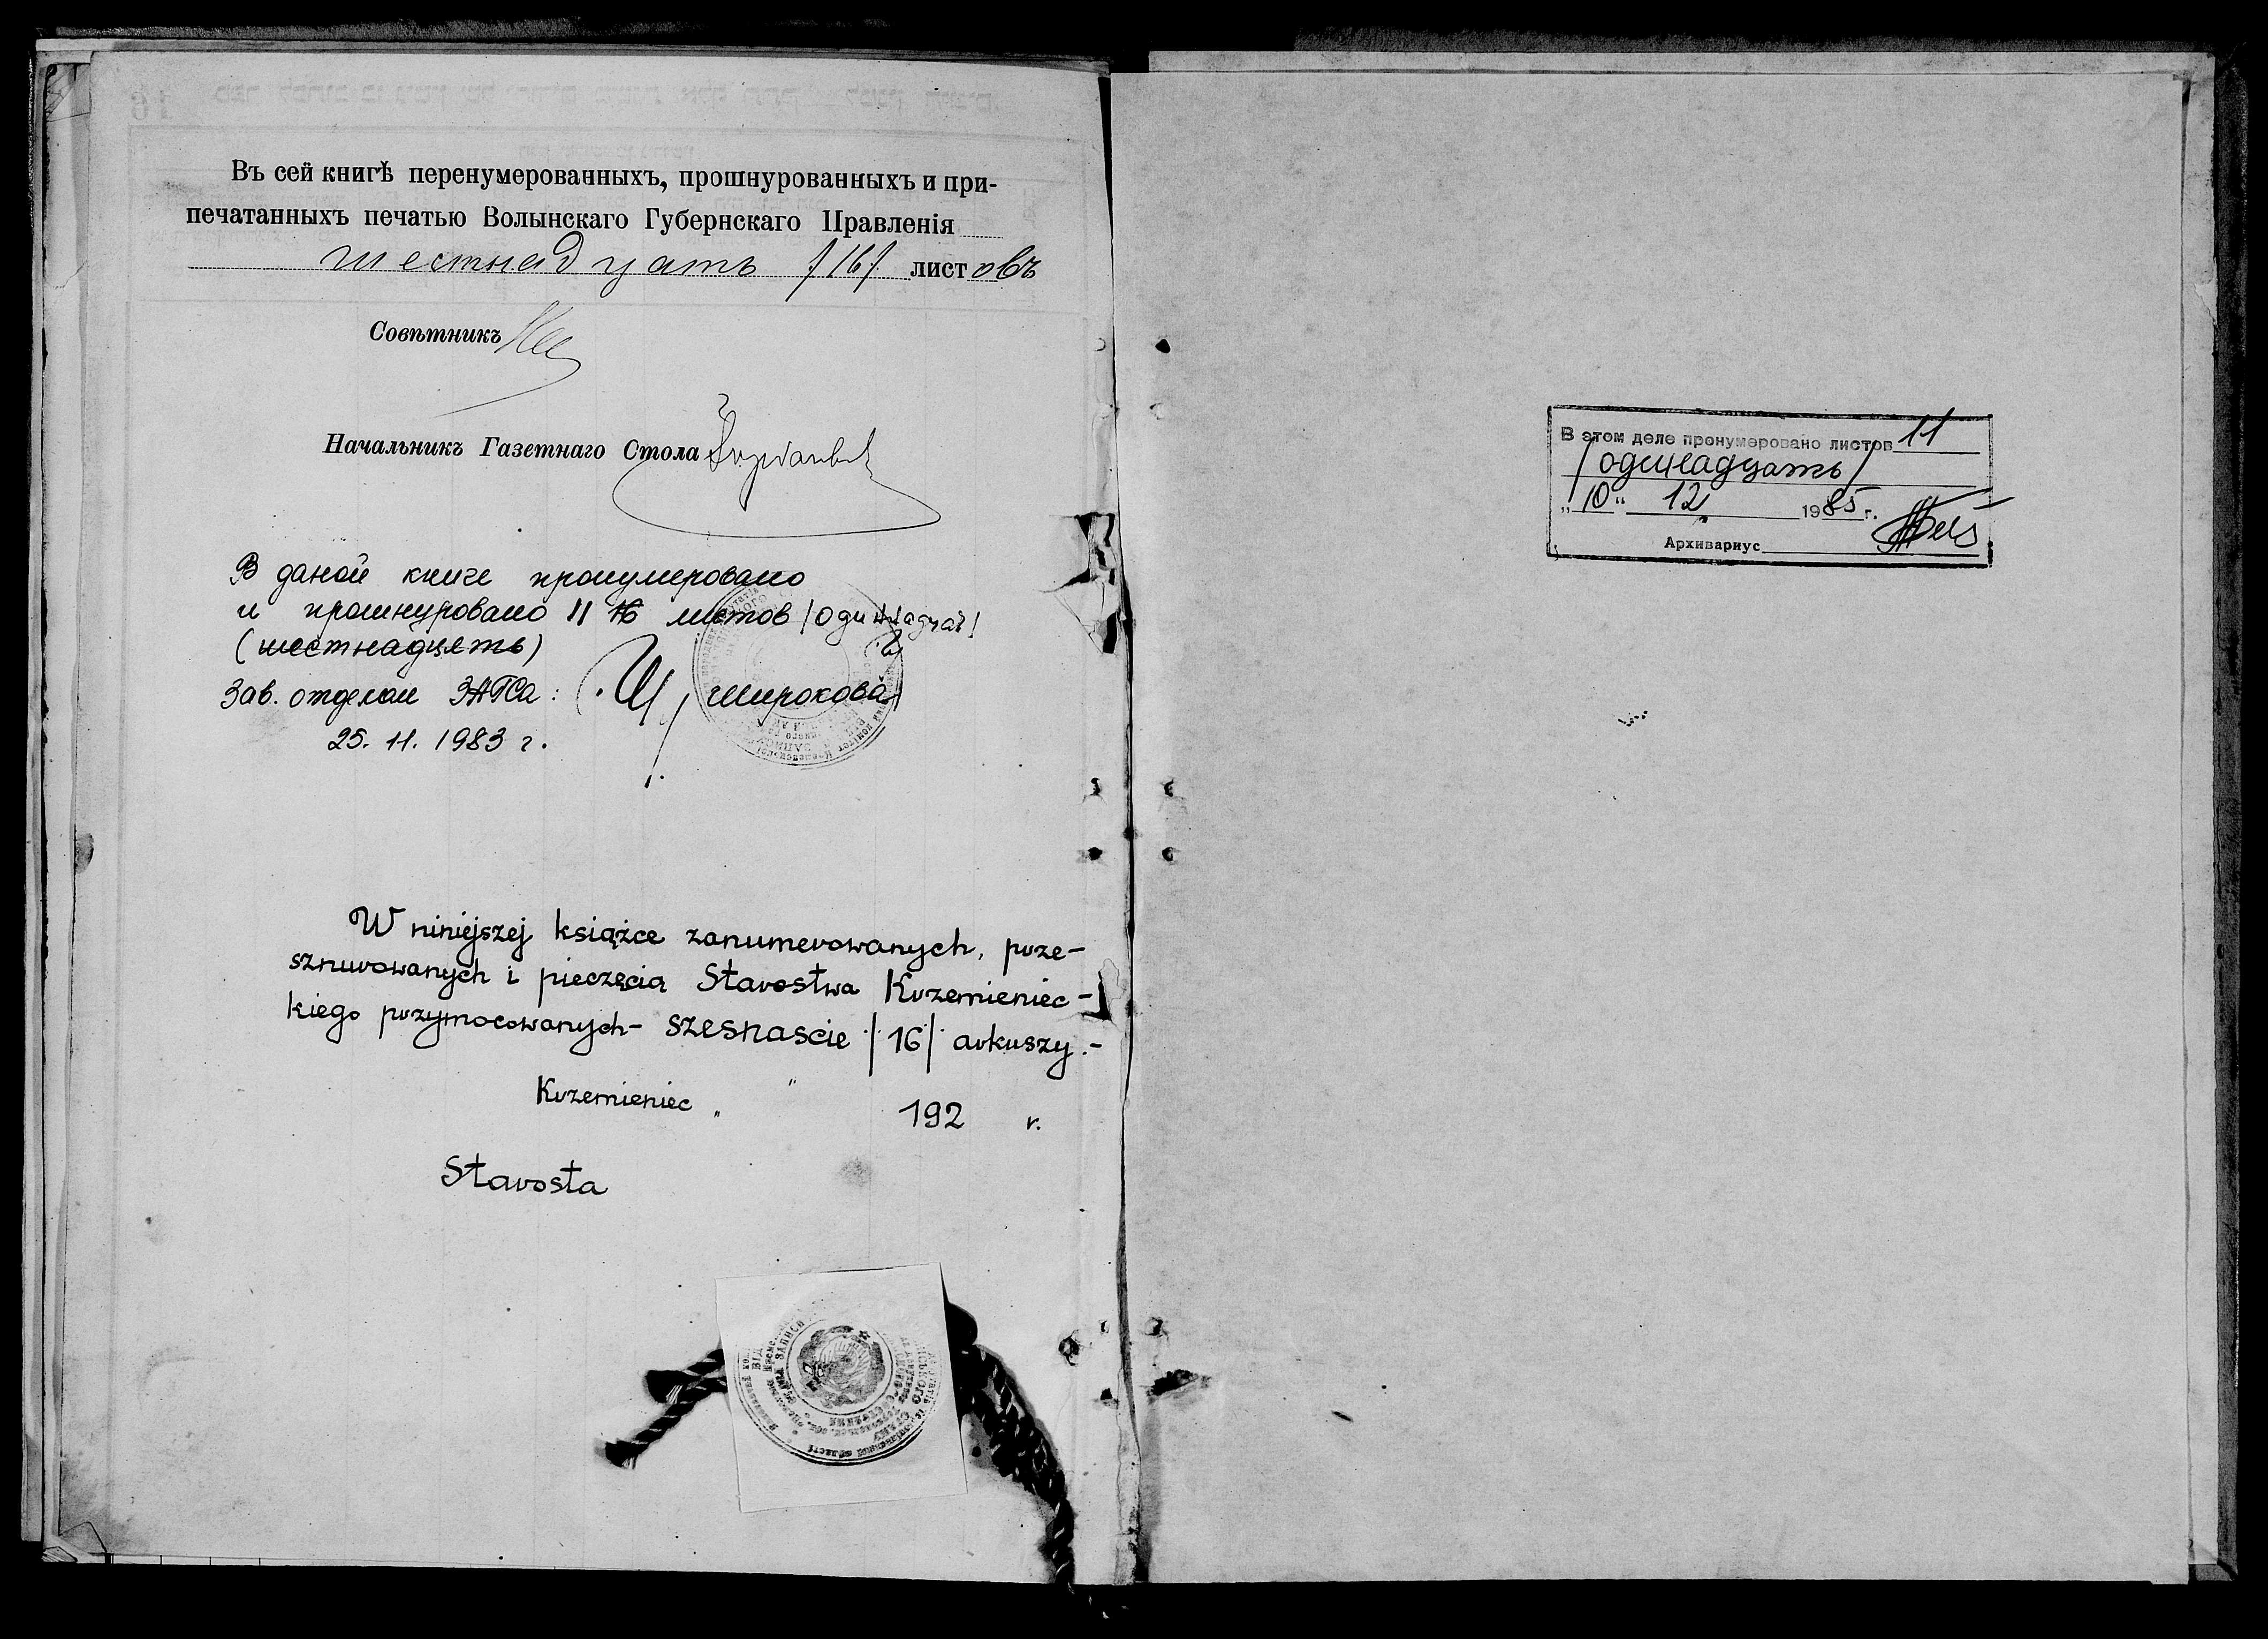 Въ сей книгѣ перенумерованныхъ, прошнурованныхъ и при-
печатанныхъ печатью Волынскаго Губернскаго Правленія
шестнадцать /16/ листовъ
Совѣтникъ
Начальникъ Газетнаго Стола
В даной книге пронумеровано
и прошнуровано 11 16 листов /одиннадцать/
(шестнадцять)
Зав. отделом ЗАГСа: Широкова
25. 11. 1983 г.
W niniejszej książce zanumerowanych, prze-
sznurowanych i pieczęcią Starostwa Krzemieniec-
kiego przymocowanych - szesnascie /16/ arkuszy.-
Krzemieniec „ " 192 r.
Starosta
В этом деле пронумеровано листов 11
/одиннадцать/
„10" 12 1985 г.
Архивариус